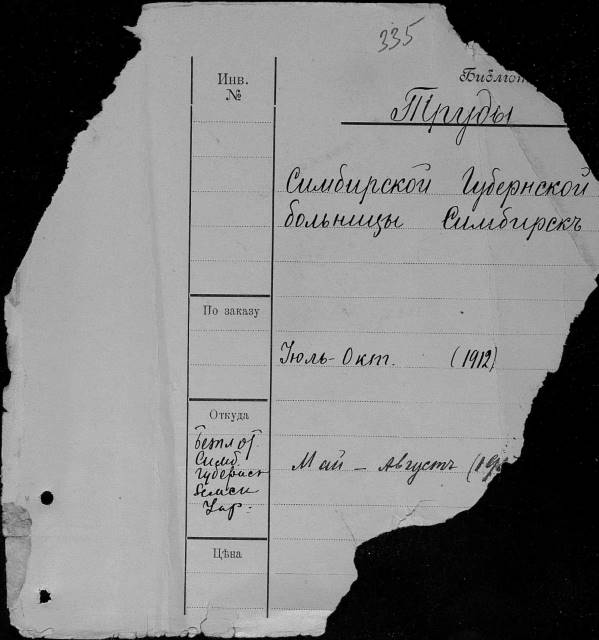 335
Инв.
№
Библіот
Труды
Симбирской Губернской
больницы Симбирскъ
По заказу
Іюль-Окт. (1912)
Откуда
Безпл от
Симб.
Губернск
Земск
Упр.
Май - Августъ (19
Цѣна